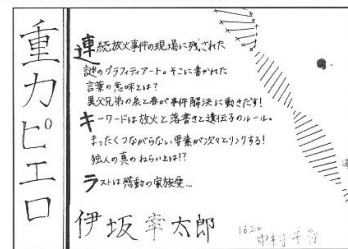 重力ピエロ
連続放火事件の現場に残された
謎のグラフィティアート。そこに書かれた
言葉の意味とは?
異父兄弟の泉と春が事件解決に動きだす!
キーワードは放火と落書きと遺伝子のルール。
まったくつながらない要素が次々とリンクする!
犯人の真のねらいとは!?
ラストは感動の家族愛…
伊坂幸太郎